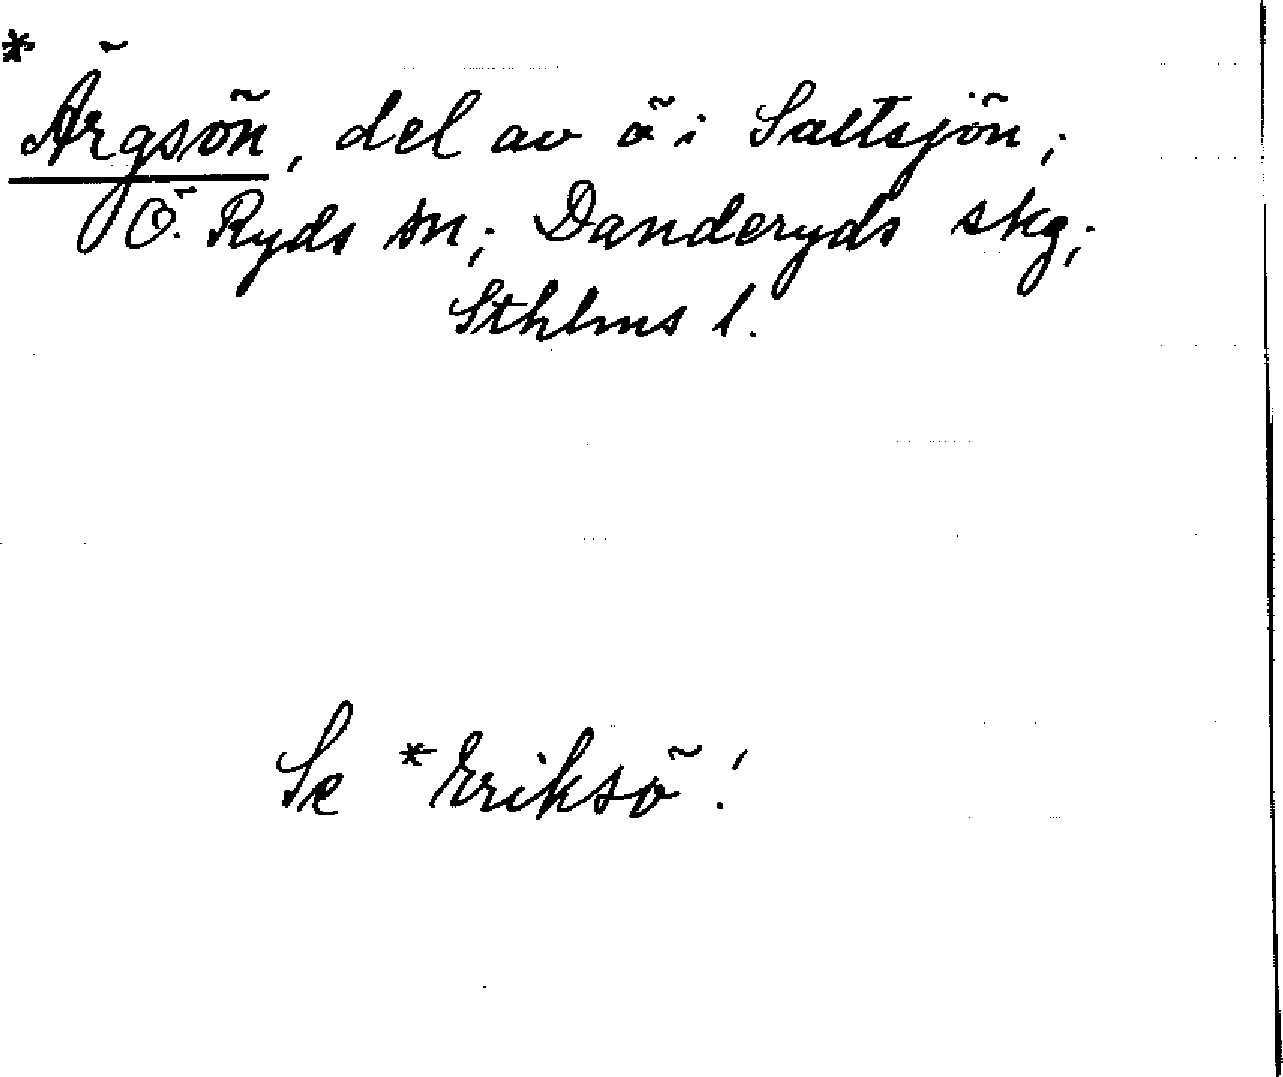 *Ärgsön, del av ö i Saltsjön;
Ö. Ryds sn; Danderyds skg;
Sthlms l.
Se *Eriksö!